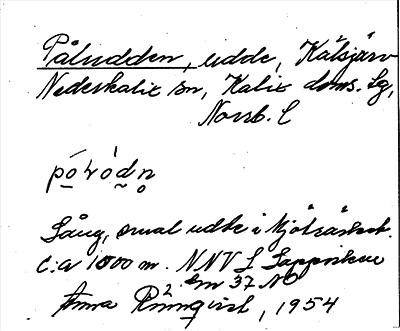 Påludden, udde, Kälsjärv
Nederkalix sn, Kalix doms. lg,
Norrb. l
Lång, smal udde i Mjöträsket.
c:a 1000 m. NNV L Lappviken
em 37 NO
Anna Rönnqvist, 1954